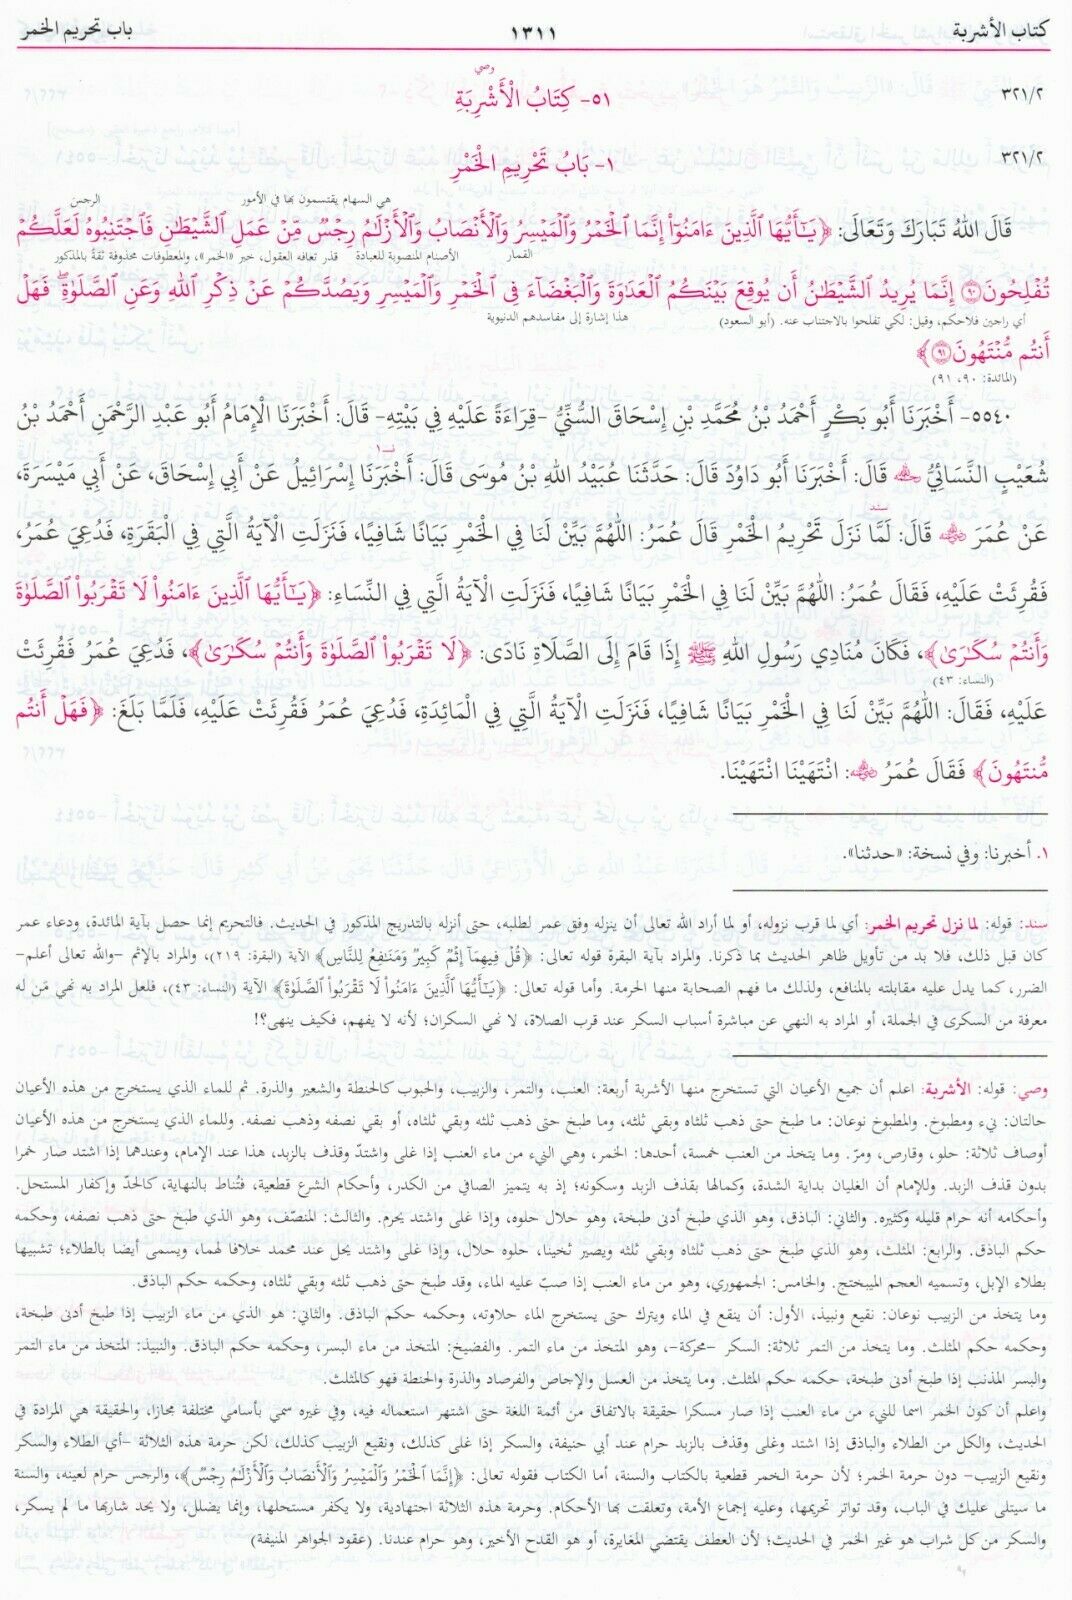 كتاب الأشربة ١٣١١ باب تحريم الخمر
وصي
٣٢١/٢ ٥١- كِتَابُ الْأَشْرِبَةِ
٣٢١/٢ ١- بَابُ تَحْرِيمِ الْخَمْرِ
هي السهام يقتسمون بها في الأمور الرجس
قَالَ اللهُ تَبَارَكَ وَتَعَالَى: ﴿يَٰٓأَيُّهَا ٱلَّذِينَ ءَامَنُوٓاْ إِنَّمَا ٱلۡخَمۡرُ وَٱلۡمَيۡسِرُ وَٱلۡأَنصَابُ وَٱلۡأَزۡلَٰمُ رِجۡسٞ مِّنۡ عَمَلِ ٱلشَّيۡطَٰنِ فَٱجۡتَنِبُوهُ لَعَلَّكُمۡ
القمار الأصنام المنصوبة للعبادة قذر تعافه العقول، خبر «الخمر»، والمعطوفات محذوفة ثقةً بالمذكور
تُفۡلِحُونَ ۝٩٠ إِنَّمَا يُرِيدُ ٱلشَّيۡطَٰنُ أَن يُوقِعَ بَيۡنَكُمُ ٱلۡعَدَٰوَةَ وَٱلۡبَغۡضَآءَ فِي ٱلۡخَمۡرِ وَٱلۡمَيۡسِرِ وَيَصُدَّكُمۡ عَن ذِكۡرِ ٱللَّهِ وَعَنِ ٱلصَّلَوٰةِۖ فَهَلۡ
أي راجين فلاحكم، وقيل: لكي تفلحوا بالاجتناب عنه. (أبو السعود) هذا إشارة إلى مفاسدهم الدنيوية
أَنتُم مُّنتَهُونَ ۝٩١﴾
(المائدة: ٩٠، ٩١)
٥٥٤٠- أَخْبَرَنَا أَبُو بَكْرٍ أَحْمَدُ بْنُ مُحَمَّدِ بْنِ إِسْحَاقَ السُّنِّيُّ -قِرَاءَةً عَلَيْهِ فِي بَيْتِهِ- قَالَ: أَخْبَرَنَا الْإِمَامُ أَبُو عَبْدِ الرَّحْمَنِ أَحْمَدُ بْنُ
شُعَيْبٍ النَّسَائِيُّ رحمه الله قَالَ: أَخْبَرَنَا أَبُو دَاوُدَ قَالَ: حَدَّثَنَا عُبَيْدُ اللهِ بْنُ مُوسَى قَالَ: أَخْبَرَنَا إِسْرَائِيلُ عَنْ أَبِي إِسْحَاقَ، عَنْ أَبِي مَيْسَرَةَ،
عَنْ عُمَرَ رضي الله عنه قَالَ: لَمَّا نَزَلَ تَحْرِيمُ الْخَمْرِ قَالَ عُمَرُ: اللَّهُمَّ بَيِّنْ لَنَا فِي الْخَمْرِ بَيَانًا شَافِيًا، فَنَزَلَتِ الْآيَةُ الَّتِي فِي الْبَقَرَةِ، فَدُعِيَ عُمَرُ،
فَقُرِئَتْ عَلَيْهِ، فَقَالَ عُمَرُ: اللَّهُمَّ بَيِّنْ لَنَا فِي الْخَمْرِ بَيَانًا شَافِيًا، فَنَزَلَتِ الْآيَةُ الَّتِي فِي النِّسَاءِ: ﴿يَٰٓأَيُّهَا ٱلَّذِينَ ءَامَنُواْ لَا تَقۡرَبُواْ ٱلصَّلَوٰةَ
وَأَنتُمۡ سُكَٰرَىٰ﴾، فَكَانَ مُنَادِي رَسُولِ اللهِ ﷺ إِذَا قَامَ إِلَى الصَّلَاةِ نَادَى: ﴿لَا تَقۡرَبُواْ ٱلصَّلَوٰةَ وَأَنتُمۡ سُكَٰرَىٰ﴾، فَدُعِيَ عُمَرُ فَقُرِئَتْ
(النساء: ٤٣)
عَلَيْهِ، فَقَالَ: اللَّهُمَّ بَيِّنْ لَنَا فِي الْخَمْرِ بَيَانًا شَافِيًا، فَنَزَلَتِ الْآيَةُ الَّتِي فِي الْمَائِدَةِ، فَدُعِيَ عُمَرُ فَقُرِئَتْ عَلَيْهِ، فَلَمَّا بَلَغَ: ﴿فَهَلۡ أَنتُم
مُّنتَهُونَ﴾ فَقَالَ عُمَرُ رضي الله عنه: انْتَهَيْنَا انْتَهَيْنَا.
١. أخبرنا: وفي نسخة: «حدثنا».
سند: قوله: لما نزل تحريم الخمر: أي لما قرب نزوله، أو لما أراد الله تعالى أن ينزله وفق عمر لطلبه، حتى أنزله بالتدريج المذكور في الحديث. فالتحريم إنما حصل بآية المائدة، ودعاء عمر
كان قبل ذلك، فلا بد من تأويل ظاهر الحديث بما ذكرنا. والمراد بآية البقرة قوله تعالى: ﴿قُلۡ فِيهِمَآ إِثۡمٞ كَبِيرٞ وَمَنَٰفِعُ لِلنَّاسِ﴾ الآية (البقرة: ٢١٩)، والمراد بالإثم -والله تعالى أعلم-
الضرر، كما يدل عليه مقابلته بالمنافع، ولذلك ما فهم الصحابة منها الحرمة. وأما قوله تعالى: ﴿يَٰٓأَيُّهَا ٱلَّذِينَ ءَامَنُواْ لَا تَقۡرَبُواْ ٱلصَّلَوٰةَ﴾ الآية (النساء: ٤٣)، فلعل المراد به نهي مَن له
معرفة من السكرى في الجملة، أو المراد به النهي عن مباشرة أسباب السكر عند قرب الصلاة، لا نهي السكران؛ لأنه لا يفهم، فكيف ينهى؟!
وصي: قوله: الأشربة: اعلم أن جميع الأعيان التي تستخرج منها الأشربة أربعة: العنب، والتمر، والزبيب، والحبوب كالحنطة والشعير والذرة. ثم للماء الذي يستخرج من هذه الأعيان
حالتان: نيء ومطبوخ. والمطبوخ نوعان: ما طبخ حتى ذهب ثلثاه وبقي ثلثه، وما طبخ حتى ذهب ثلثه وبقي ثلثاه، أو بقي نصفه وذهب نصفه. وللماء الذي يستخرج من هذه الأعيان
أوصاف ثلاثة: حلو، وقارص، ومرّ. وما يتخذ من العنب خمسة، أحدها: الخمر، وهي النيء من ماء العنب إذا غلى واشتدّ وقذف بالزبد، هذا عند الإمام، وعندهما إذا اشتد صار خمرا
بدون قذف الزبد. وللإمام أن الغليان بداية الشدة، وكمالها بقذف الزبد وسكونه؛ إذ به يتميز الصافي من الكدر، وأحكام الشرع قطعية، فتُناط بالنهاية، كالحدّ وإكفار المستحل.
وأحكامه أنه حرام قليله وكثيره. والثاني: الباذق، وهو الذي طبخ أدنى طبخة، وهو حلال حلوه، وإذا غلى واشتد يحرم. والثالث: المنصّف، وهو الذي طبخ حتى ذهب نصفه، وحكمه
حكم الباذق. والرابع: المثلث، وهو الذي طبخ حتى ذهب ثلثاه وبقي ثلثه ويصير ثخينا، حلوه حلال، وإذا غلى واشتد يحل عند محمد خلافا لهما، ويسمى أيضا بالطلاء؛ تشبيها
بطلاء الإبل، وتسميه العجم الميبختج. والخامس: الجمهوري، وهو من ماء العنب إذا صبّ عليه الماء، وقد طبخ حتى ذهب ثلثه وبقي ثلثاه، وحكمه حكم الباذق.
وما يتخذ من الزبيب نوعان: نقيع ونبيذ، الأول: أن ينقع في الماء ويترك حتى يستخرج الماء حلاوته، وحكمه حكم الباذق. والثاني: هو الذي من ماء الزبيب إذا طبخ أدنى طبخة،
وحكمه حكم المثلث. وما يتخذ من التمر ثلاثة: السكر -محركة-، وهو المتخذ من ماء التمر. والفضيخ: المتخذ من ماء البسر، وحكمه حكم الباذق. والنبيذ: المتخذ من ماء التمر
والبسر المذنب إذا طبخ أدنى طبخة، حكمه حكم المثلث. وما يتخذ من العسل والإجاص والفرصاد والذرة والحنطة فهو كالمثلث.
واعلم أن كون الخمر اسما للنيء من ماء العنب إذا صار مسكرا حقيقة بالاتفاق من أئمة اللغة حتى اشتهر استعماله فيه، وفي غيره سمي بأسامي مختلفة مجازا، والحقيقة هي المرادة في
الحديث، والكل من الطلاء والباذق إذا اشتد وغلى وقذف بالزبد حرام عند أبي حنيفة، والسكر إذا غلى كذلك، ونقيع الزبيب كذلك، لكن حرمة هذه الثلاثة -أي الطلاء والسكر
ونقيع الزبيب- دون حرمة الخمر؛ لأن حرمة الخمر قطعية بالكتاب والسنة، أما الكتاب فقوله تعالى: ﴿إِنَّمَا ٱلۡخَمۡرُ وَٱلۡمَيۡسِرُ وَٱلۡأَنصَابُ وَٱلۡأَزۡلَٰمُ رِجۡسٞ﴾، والرجس حرام لعينه، والسنة
ما سيتلى عليك في الباب، وقد تواتر تحريمها، وعليه إجماع الأمة، وتعلقت بها الأحكام. وحرمة هذه الثلاثة اجتهادية، ولا يكفر مستحلها، وإنما يضلل، ولا يحد شاربها ما لم يسكر،
والسكر من كل شراب هو غير الخمر في الحديث؛ لأن العطف يقتضي المغايرة، أو هو القدح الأخير، وهو حرام عندنا. (عقود الجواهر المنيفة)